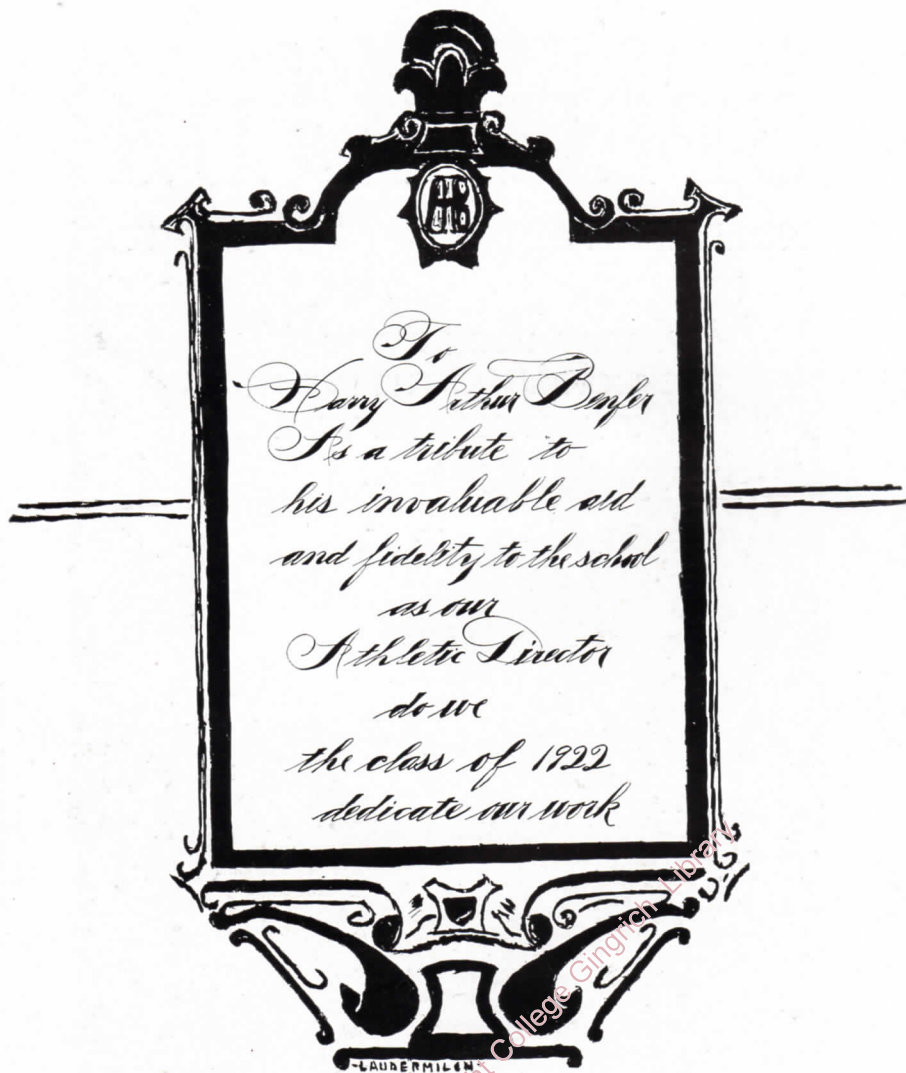 AHB
To
Harry Arthur Benfer
As a tribute to
his invaluable aid
and fidelity to the school
as our
Athletic Director
do we
the class of 1922
dedicate our work
-LAUDERMILCH-
College Gingrich Library